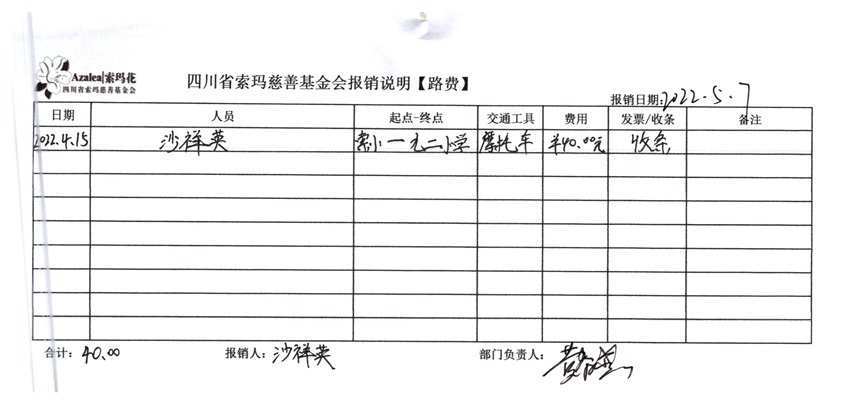 Azalea|索玛花
四川省索玛慈善基金会
四川省索玛慈善基金会报销说明【路费】
报销日期:2022.5.7
日期 人员 起点-终点 交通工具 费用 发票/收条 备注
2022.4.15 沙祥英 索小一九二小学 摩托车 ¥40.00元 收条
合计: 40.00 报销人: 沙祥英 部门负责人: